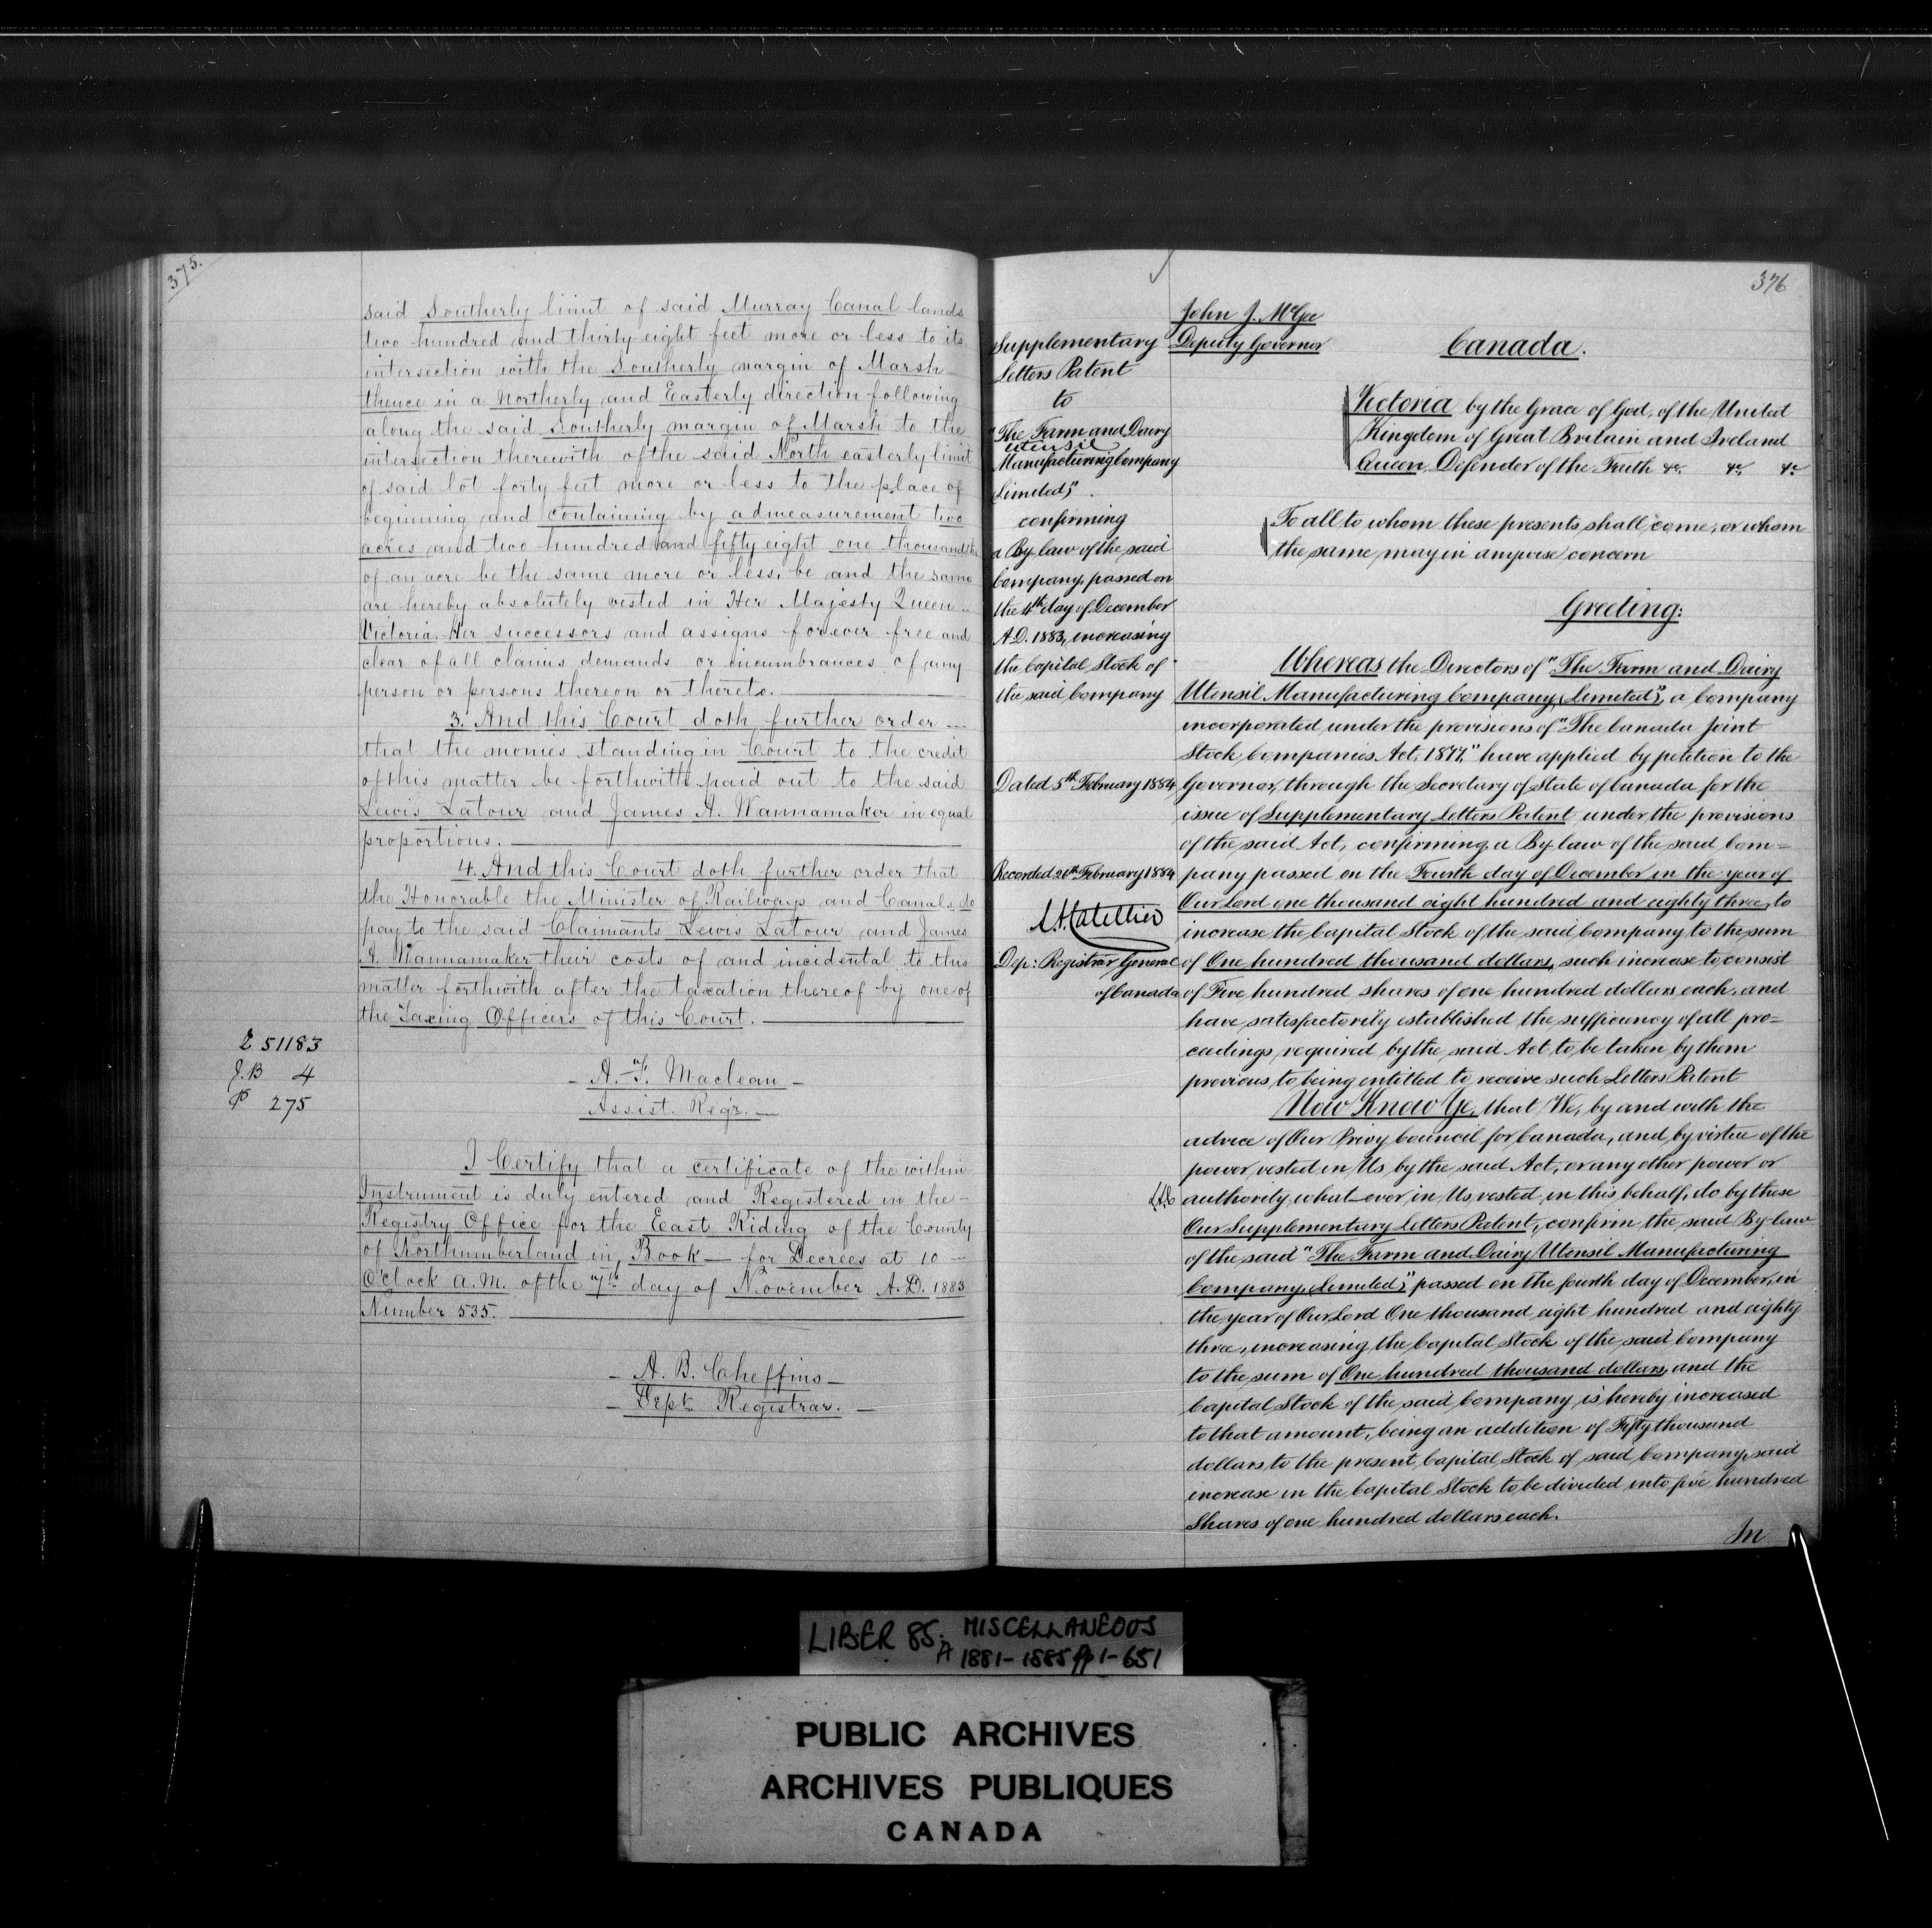 375.
said Southerly limit of said Murray Canal lands
two hundred and thirty-eight feet more or less to its
intersection with the Southerly margin of Marsh
thence in a Northerly and Easterly direction following
along the said Southerly margin of Marsh to the
intersection therewith of the said North easterly limit
of said lot forty feet more or less to the place of
beginning and containing by admeasurement two
acres and two hundred and fifty eight one thousandths
of an acre be the same more or less, be and the same
are hereby absolutely vested in Her Majesty Queen
Victoria. Her successors and assigns forever free and
clear of all claims demands or incumbrances of any
person or persons thereon or thereto.
3. And this Court doth further order
that the monies standing in Court to the credit
of this matter be forthwith paid out to the said
Lewis Latour and James A. Wannamaker in equal
proportions.
4. And this Court doth further order that
the Honorable the Minister of Railways and Canals do
pay to the said Claimants Lewis Latour and James
A. Wannamaker their costs of and incidental to this
matter forthwith after the taxation thereof by one of
the Taxing Officers of this Court.
51183
J.B 4
275
- A. F. Maclean -
Assist. Reg'r. -
I Certify that a certificate of the within
Instrument is duly entered and Registered in the -
Registry Office for the East Riding of the County
of Northumberland in Book — for Decrees at 10 —
O'Clock a.m. of the 7th day of November A.D. 1883
Number 535.
- A. B. Cheffins -
- Dept. Registrar. -
376
John J. McGee
Deputy Governor
Supplementary
Letters Patent
to
"The Farm and Dairy
utensil
Manufacturing Company
Limited,"
confirming
a By law of the said
Company, passed on
the 4th day of December
A.D. 1883, increasing
the Capital Stock of
the said Company
Dated 5th February 1884
Recorded 20th February 1884
Dep: Registrar General
of Canada
Canada.
Victoria by the Grace of God, of the United
Kingdom of Great Britain and Ireland
Queen, Defender of the Faith &c. &c. &c
To all to whom these presents shall come, or whom
the same may in anywise concern
Greeting:
Whereas the Directors of "The Farm and Dairy
Utensil Manufacturing Company, (Limited)", a Company
incorporated under the provisions of "The Canada Joint
Stock Companies Act, 1877," have applied by petition to the
Governor, through the Secretary of State of Canada for the
issue of Supplementary Letters Patent under the provisions
of the said Act, confirming a By law of the said Com=
pany passed on the Fourth day of December in the year of
Our Lord one thousand eight hundred and eighty three, to
increase the Capital Stock of the said Company to the sum
of One hundred thousand dollars, such increase to consist
of Five hundred shares of one hundred dollars each, and
have satisfactorily established the sufficiency of all pro=
ceedings required by the said Act, to be taken by them
previous to being entitled to receive such Letters Patent
Now Know Ye, that We, by and with the
advice of Our Privy Council for Canada, and by virtue of the
power vested in Us by the said Act, or any other power or
authority what-ever in Us vested in this behalf, do by these
Our Supplementary Letters Patent, confirm the said By-law
of the said "The Farm and Dairy Utensil Manufacturing
Company, (Limited)," passed on the fourth day of December, in
the year of Our Lord One thousand eight hundred and eighty
three, increasing the Capital Stock of the said Company
to the sum of One hundred thousand dollars, and the
Capital Stock of the said Company is hereby increased
to that amount, being an addition of Fifty thousand
dollars, to the present Capital Stock of said Company, said
increase in the Capital Stock to be divided into five hundred
Shares of one hundred dollars each.
In
LIBER 85. A MISCELLANEOUS
1881-1885 pp 1-651
PUBLIC ARCHIVES
ARCHIVES PUBLIQUES
CANADA